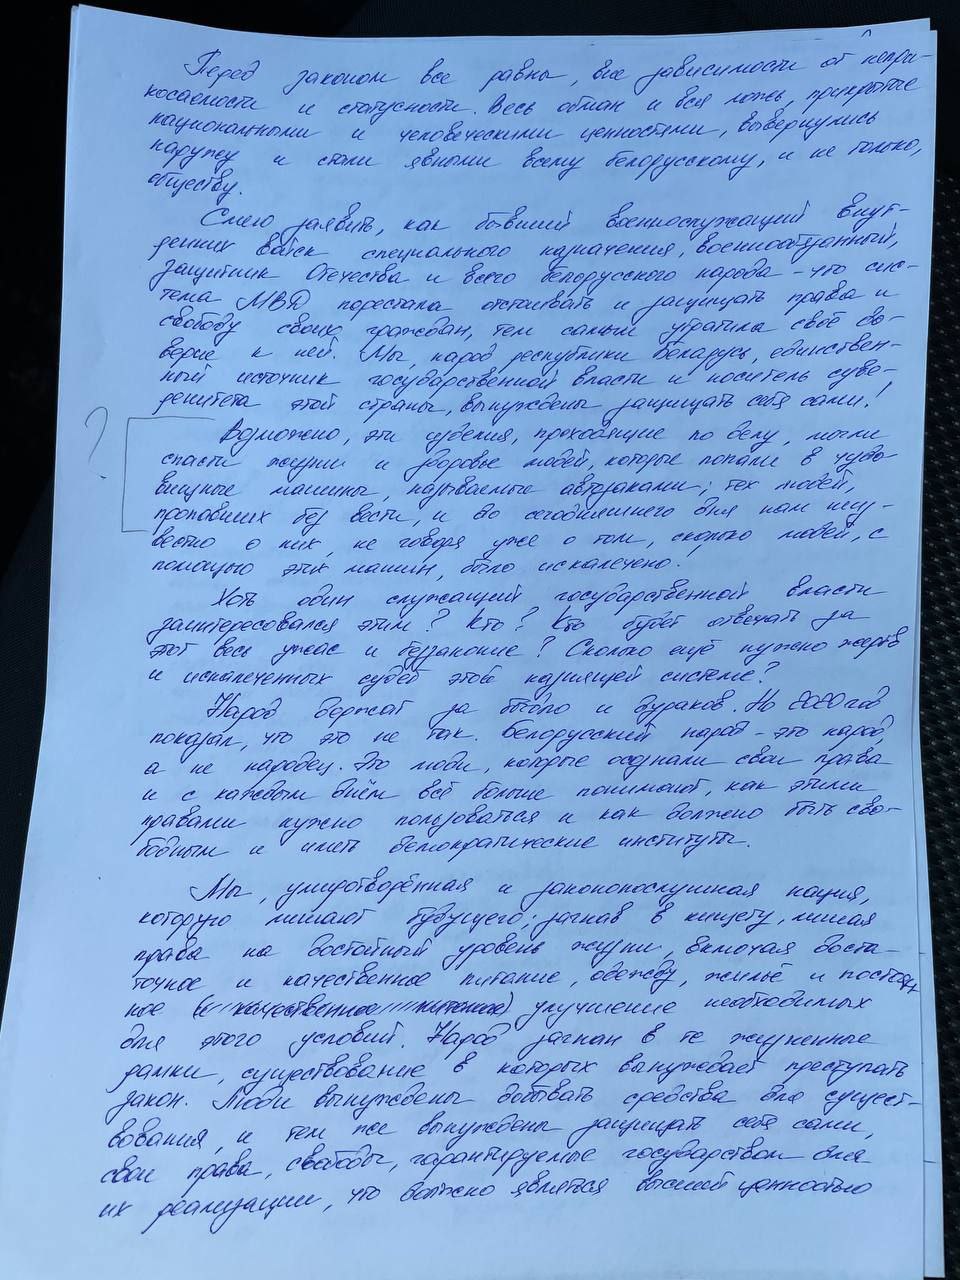 Перед законом все равны, вне зависимости от непри-
косаемости и статусности. Весь обман и вся ложь, прикрытые
национальными и человеческими ценностями, вывернулись
наружу и стали явными всему белорусскому, и не только,
обществу.
Смею заявить, как бывший военнослужащий внут-
ренних войск специального назначения, военнообязанный,
защитник Отечества и всего белорусского народа - что сис-
тема МВД перестала отстаивать и защищать права и
свободу своих граждан, тем самым утратила своё до-
верие к ней. Мы, народ республики Беларусь, единствен-
ный источник государственной власти и носитель суве-
ренитета этой страны, вынуждены защищать себя сами!
?
Возможно, эти изделия, проходящие по делу, могли
спасти жизни и здоровье людей, которые попали в чудо-
вищные машины, называемые автозаками; тех людей,
пропавших без вести, и до сегодняшнего дня нам неиз-
вестно о них, не говоря уже о том, сколько людей, с
помощью этих машин, было искалечено.
Хоть один служащий государственной власти
заинтересовался этим? Кто? Кто будет отвечать за
этот весь ужас и беззаконие? Сколько ещё нужно жертв
и искалеченных судеб этой системе?
Народ держат за быдло и дураков. Но 2020 год
показал, что это не так. Белорусский народ - это народ,
а не народец. Это люди, которые осознали свои права
и с каждым днём всё больше понимают, как этими
правами нужно пользоваться и как должно быть сво-
бодным и иметь демократические институты.
Мы, умиротворённая и законопослушная нация,
которую лишают будущего; загнав в нищету, лишая
права на достойный уровень жизни, включая доста-
точное и качественное питание, одежду, жильё и постоян-
ное улучшение необходимых
для этого условий. Народ загнан в те жизненные
рамки, существование в которых вынуждает преступать
закон. Люди вынуждены добывать средства для сущест-
вования, и тем же вынуждены защищать себя сами,
свои права, свободы, гарантируемые государством для
их реализации, что должно являться высшей ценностью